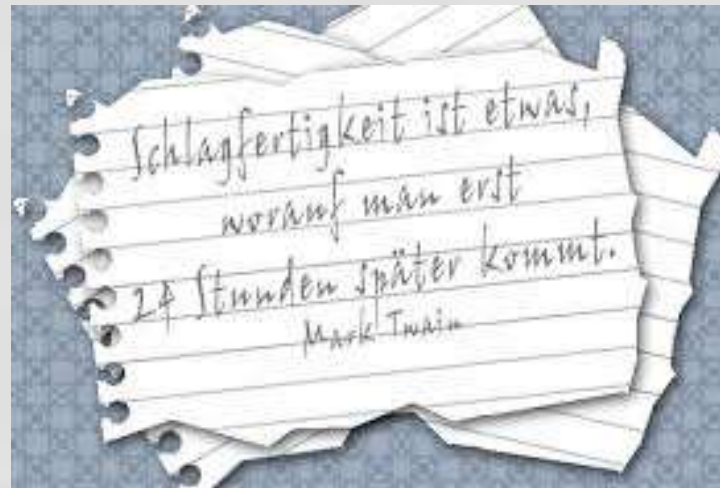 Schlagfertigkeit ist etwas,
worauf man erst
24 Stunden später kommt.
Mark Twain